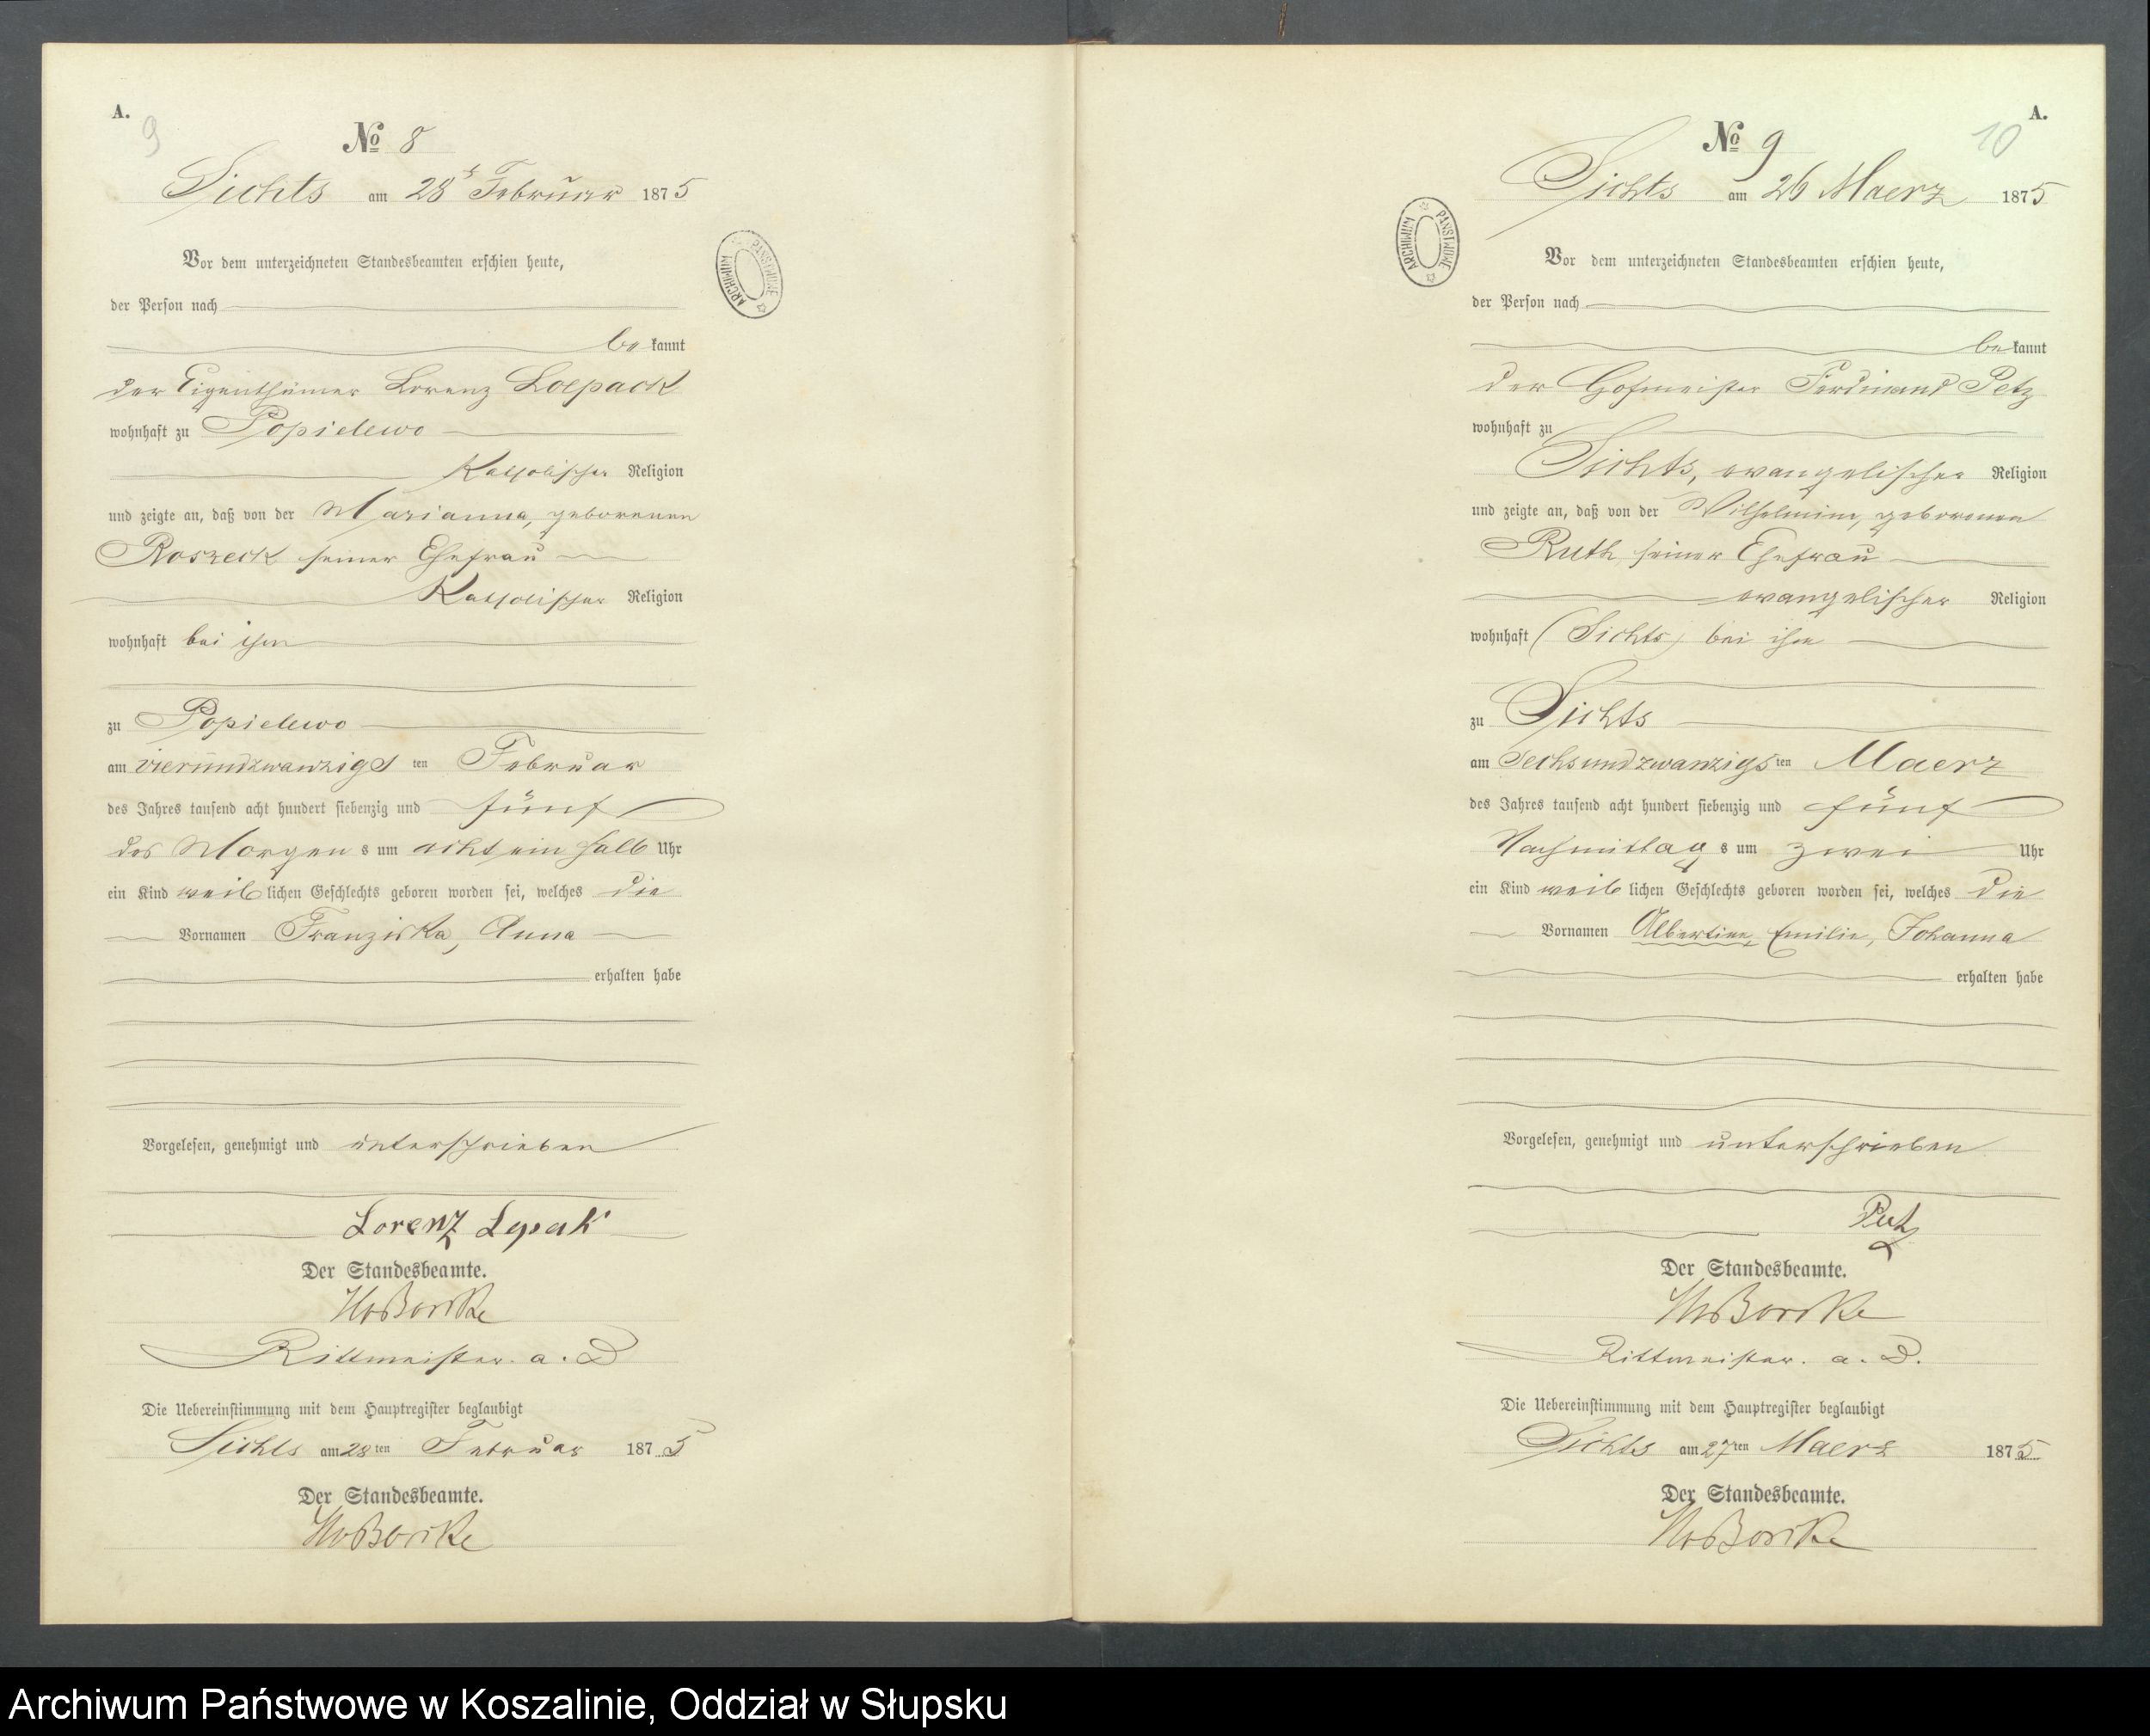 A.
9
No 8
Sichts am 28t Februar 1875
Vor dem unterzeichneten Standesbeamten erschien heute,
der Person nach
be kannt
der Eigenthümer Lorenz Loepack
wohnhaft zu Popielewo
Katholischer Religion
und zeigte an, daß von der Marianna, geborenen
Roszeck seiner Ehefrau
Katholischer Religion
wohnhaft bei ihm
zu Popielewo
am vierundzwanzigst ten Februar
des Jahres tausend acht hundert siebenzig und fünf
des Morgen s um acht ein halb Uhr
ein Kind weib lichen Geschlechts geboren worden sei, welches die
Vornamen Franziska, Anna
erhalten habe
Vorgelesen, genehmigt und unterschrieben
Lorenz Lepak
Der Standesbeamte.
Rittmeister a. D
Die Uebereinstimmung mit dem Hauptregister beglaubigt
Sichts am 28 ten Februar 1875
Der Standesbeamte.
ARCHIWUM PAŃSTWOWE
A.
10
No 9
Sichts am 26 Maerz 1875
Vor dem unterzeichneten Standesbeamten erschien heute,
der Person nach
be kannt
der Hofmeister Ferdinand Petz
wohnhaft zu
Sichts, evangelischer Religion
und zeigte an, daß von der Wilhelmine, geborenen
Ruth seiner Ehefrau
evangelischer Religion
wohnhaft (Sichts) bei ihm
zu Sichts
am Sechsundzwanzigs ten Maerz
des Jahres tausend acht hundert siebenzig und fünf
Nachmittag s um zwei Uhr
ein Kind weib lichen Geschlechts geboren worden sei, welches die
Vornamen Albertine, Emilie, Johanna
erhalten habe
Vorgelesen, genehmigt und unterschrieben
Petz
Der Standesbeamte.
Rittmeister. a. D.
Die Uebereinstimmung mit dem Hauptregister beglaubigt
Sichts am 27 ten Maerz 1875
Der Standesbeamte.
ARCHIWUM PAŃSTWOWE
Archiwum Państwowe w Koszalinie, Oddział w Słupsku